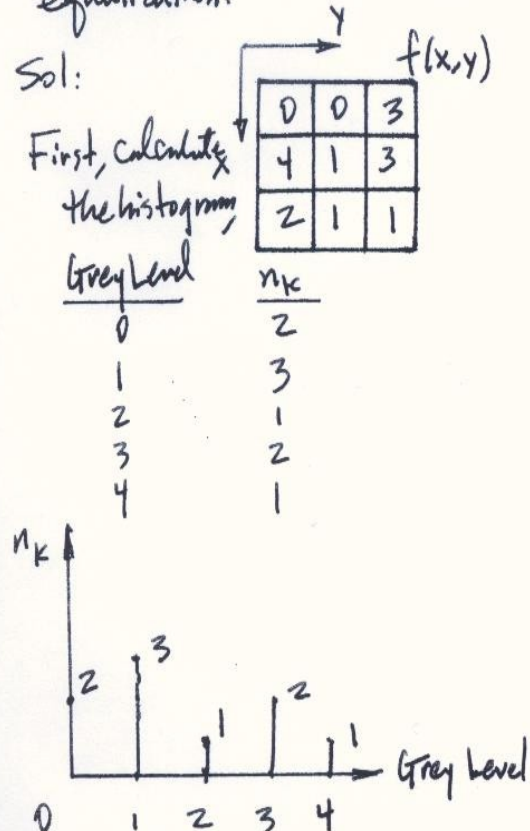 equalization
Y
Sol:
f(x,y)
0 0 3
First, calculate
x
4 1 3
the histogram,
2 1 1
Grey Level nk
0 2
1 3
2 1
3 2
4 1
nk
3
2
2
1
1
Grey Level
0 1 2 3 4